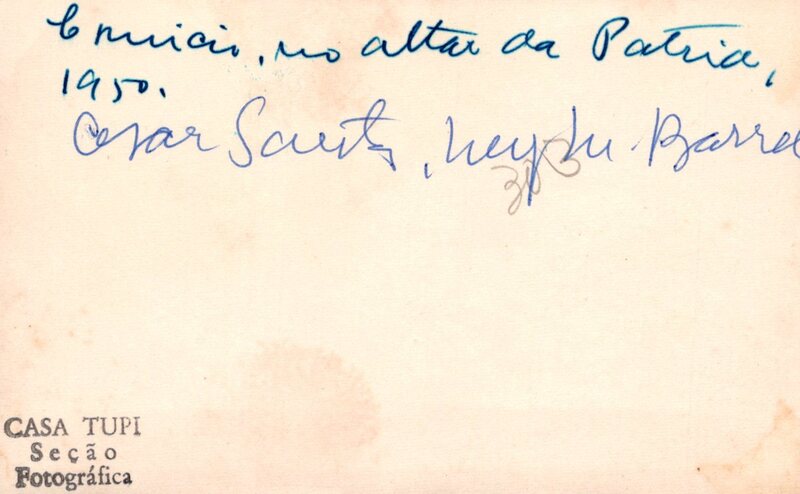 Comicio, no altar da Patria,
1950.
Cesar Santos, Ney M. Barre
303
CASA TUPI
Seção
Fotográfica